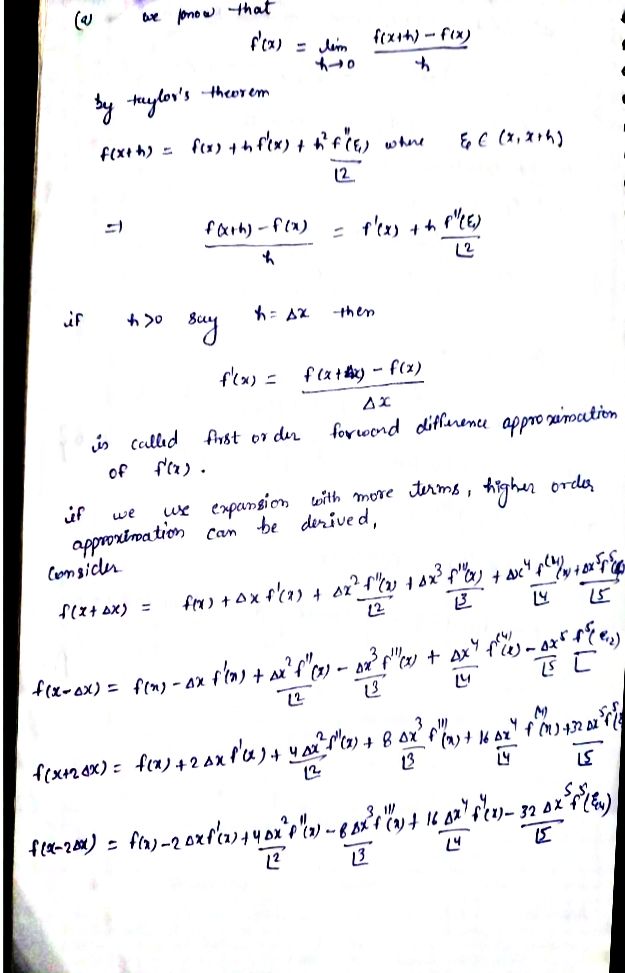 (a) we know that
f'(x) = lim h→0 f(x+h) - f(x) / h
by taylor's theorem
f(x+h) = f(x) + h f'(x) + h² f''(ξ₁) / ⌊2 where ξ₁ ∈ (x, x+h)
⇒ f(x+h) - f(x) / h = f'(x) + h f''(ξ₁) / ⌊2
if h>0 say h = Δx then
f'(x) = f(x+Δx) - f(x) / Δx
is called first order forword difference approximation
of f'(x).
if we use expansion with more terms, higher order
approximation can be derived,
Consider
f(x+Δx) = f(x) + Δx f'(x) + Δx² f''(x) / ⌊2 + Δx³ f'''(x) / ⌊3 + Δx⁴ f⁽⁴⁾(x) / ⌊4 + Δx⁵ f⁵ / ⌊5
f(x-Δx) = f(x) - Δx f'(x) + Δx² f''(x) / ⌊2 - Δx³ f'''(x) / ⌊3 + Δx⁴ f⁽⁴⁾(x) / ⌊4 - Δx⁵ / ⌊5 f⁵(ξ₂) / ⌊
f(x+2Δx) = f(x) + 2Δx f'(x) + 4Δx² f''(x) / ⌊2 + 8Δx³ f'''(x) / ⌊3 + 16Δx⁴ f⁽⁴⁾(x) / ⌊4 + 32Δx⁵ f⁵(ξ / ⌊5
f(x-2Δx) = f(x) - 2Δx f'(x) + 4Δx² f''(x) / ⌊2 - 8Δx³ f'''(x) / ⌊3 + 16Δx⁴ f⁴(x) / ⌊4 - 32Δx⁵ f⁵(ξ₄) / ⌊5